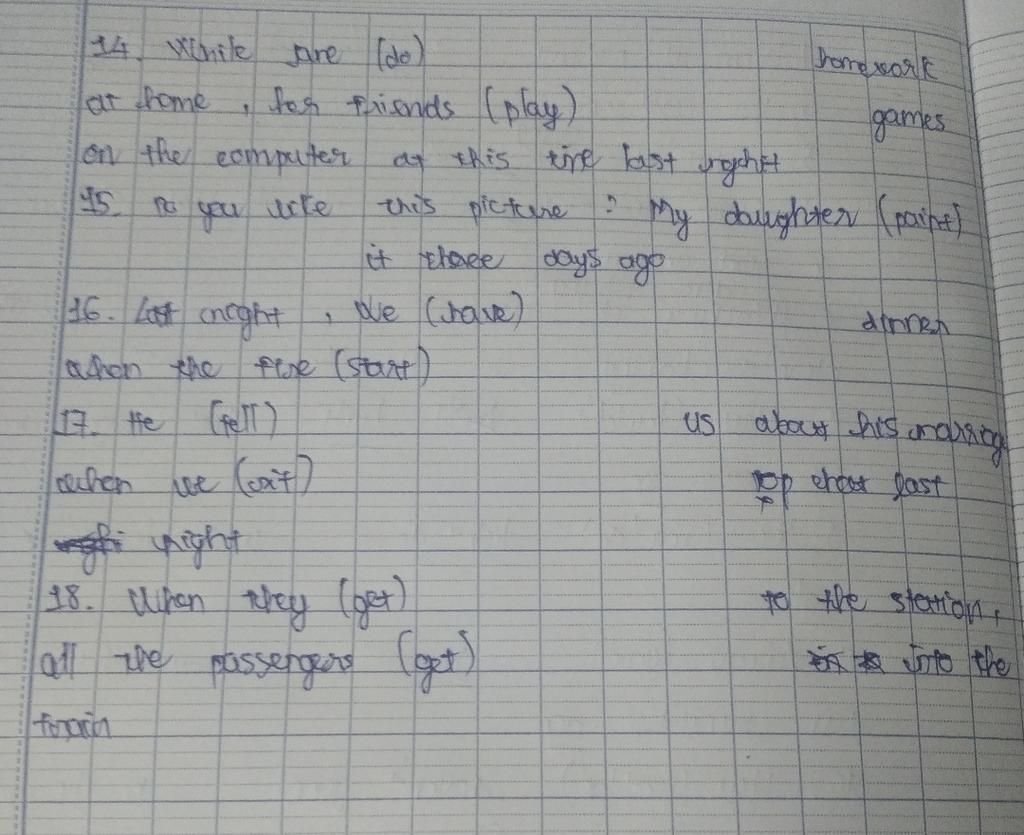 14. While are (do) homework
at home, for friends (play) games
on the computer at this time last night
15. Do you like this picture? My daughter (paint)
it three days ago
16. Last night, we (have) dinner
when the fire (start)
17. He (tell) us about his
when we (eat) last
night
18. When they (get) to the station,
all the passengers (get) into the
train